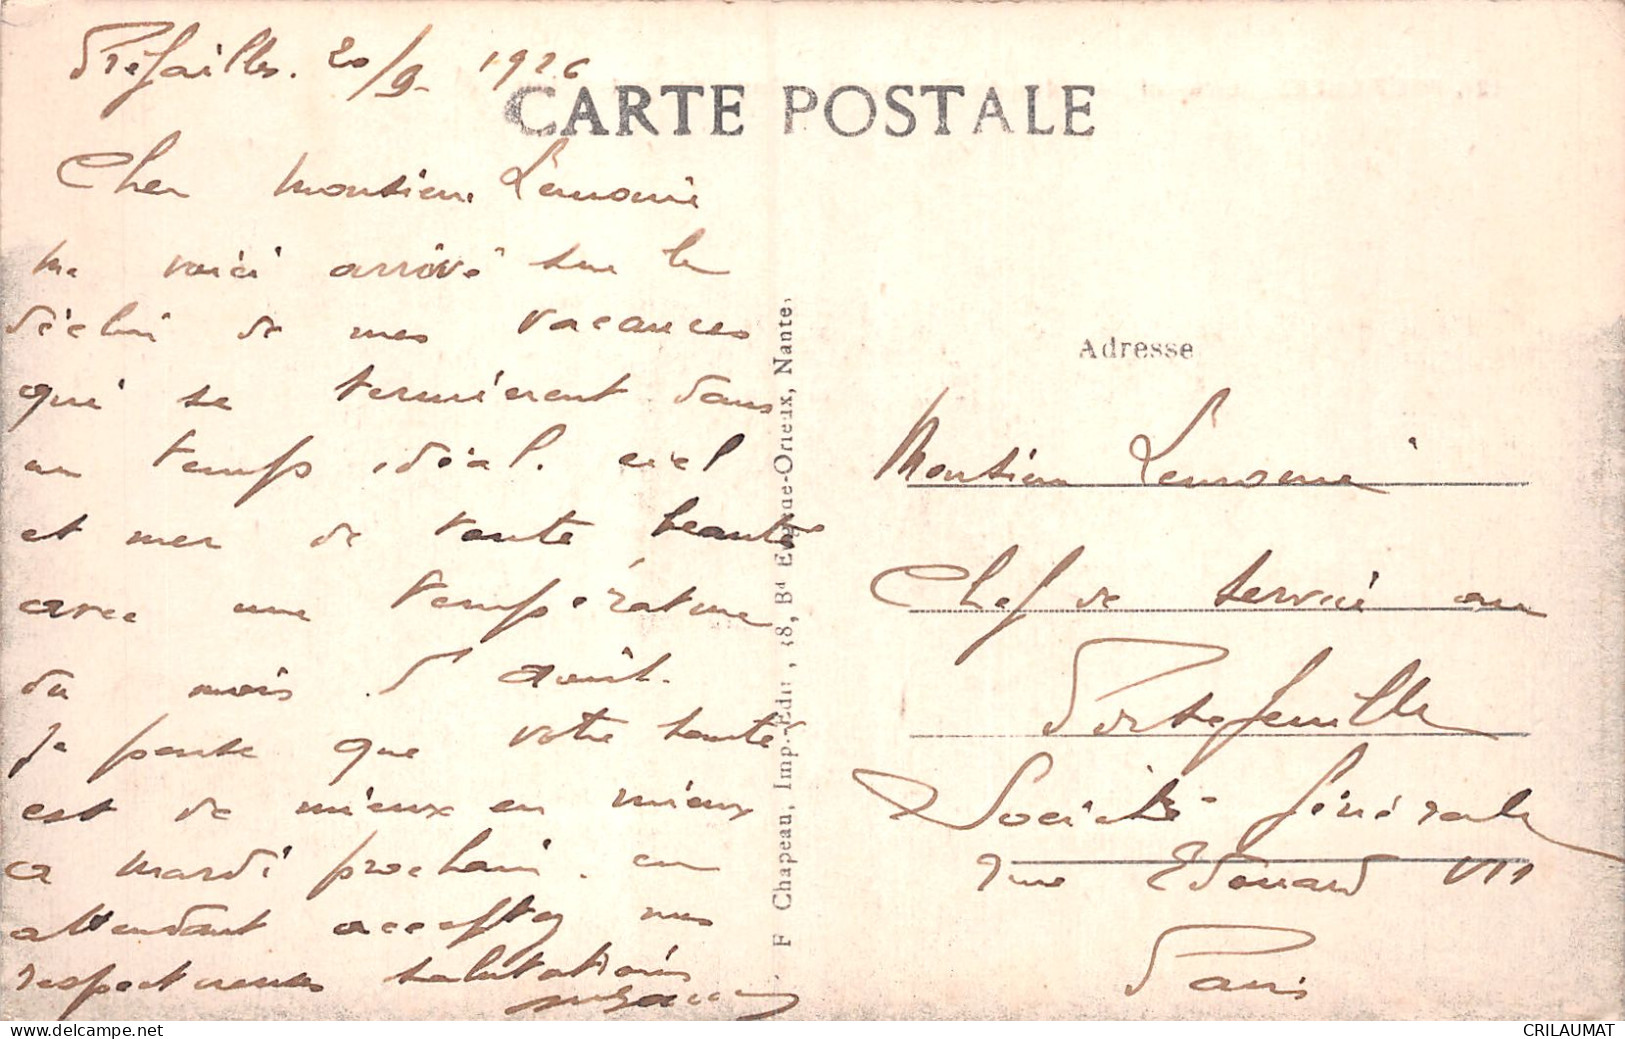 Préfailles. 20/9- 1926
CARTE POSTALE
Cher Monsieur Lemoine
me voici arrivé sur le
déclin de mes vacances
qui se termineront dans
un temps idéal. ciel
et mer de toute beauté
avec une température
du mois d'août.
Je pense que votre santé
est de mieux en mieux
a mardi prochain. en
attendant acceptez mes
respectueuses salutations
F Chapeau, Imp.-Edit, 38, Bd Evêque-Orieux, Nantes
Adresse
Monsieur Lemoine
Chef de service au
Portefeuille
Société Générale
rue Edouard VII
Paris
CRILAUMAT